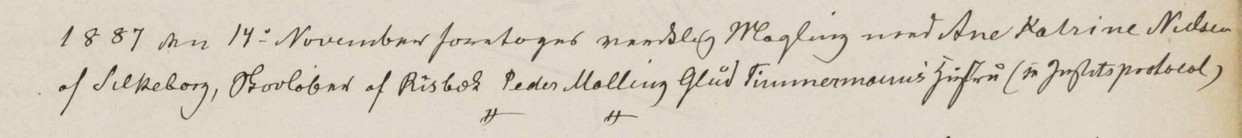 1887 den 14de November foretoges verdslig Mægling med Ane Katrine Nielsen
af Silkeborg, Skovløber af Risbæk Peder Malling Glud Timmermanns Hustru (se Justitsprotocol)